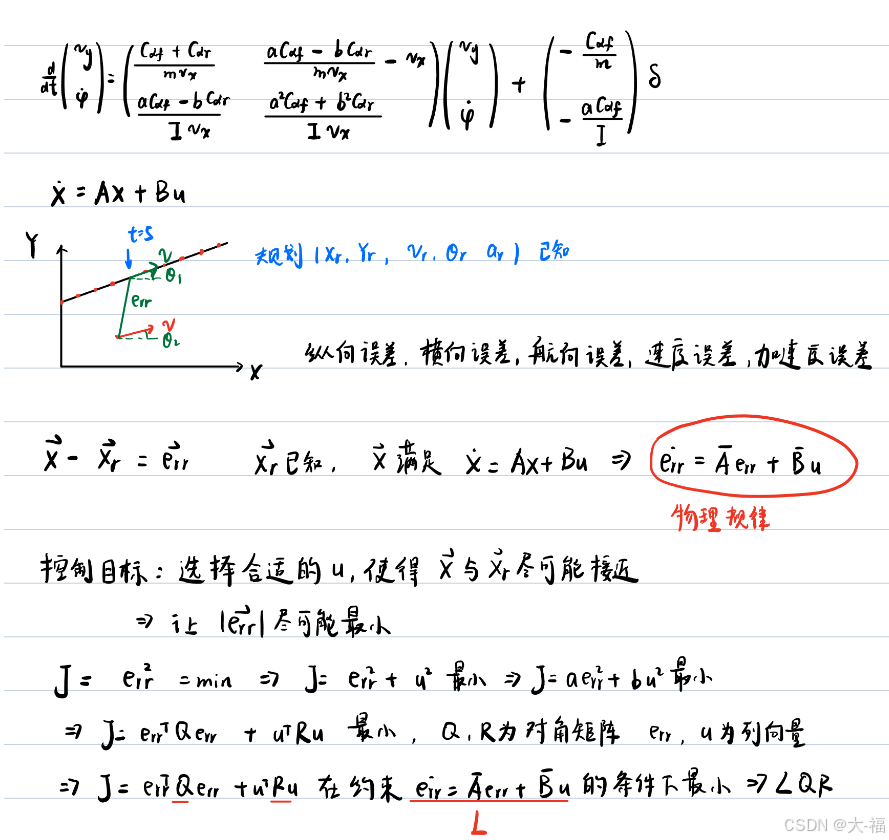 d/dt (v_y φ̇) = ( (C_αf + C_αr)/(m v_x)  (aC_αf − bC_αr)/(m v_x) − v_x ; (aC_αf − bC_αr)/(I v_x)  (a²C_αf + b²C_αr)/(I v_x) ) (v_y φ̇) + ( −C_αf/m ; −aC_αf/I ) δ
ẋ = Ax + Bu
Y
t=5
v
θ₁
规划 (Xr, Yr, vr, θr ar) 已知
err
v
θ₂
X
纵向误差. 横向误差, 航向误差, 速度误差, 加速度误差
x⃗ − x⃗r = e⃗rr  x⃗r 已知, x⃗ 满足 ẋ = Ax + Bu ⇒ ėrr = Āerr + B̄u
物理规律
控制目标: 选择合适的 u, 使得 x⃗ 与 x⃗r 尽可能接近
⇒ 让 |e⃗rr| 尽可能最小
J = err² = min ⇒ J = err² + u² 最小 ⇒ J = aerr² + bu² 最小
⇒ J = errᵀQerr + uᵀRu 最小, Q, R为对角矩阵 err, u为列向量
⇒ J = errᵀQerr + uᵀRu 在约束 ėrr = Āerr + B̄u 的条件下最小 ⇒ LQR
L
CSDN @大-福